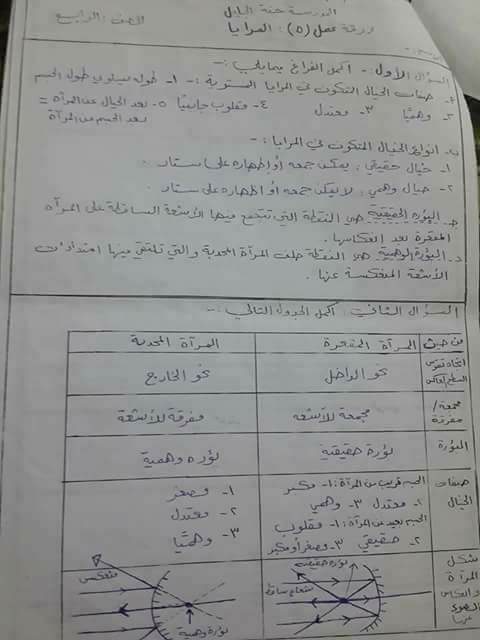 المدرسة جنة البابل
ورقة عمل (٥) : المرايا
الصف : الرابع
السؤال الأول :- أكمل الفراغ بما يلي :-
أ- صفات الخيال المتكون في المرايا المستوية :- ١- طوله يساوي طول الجسم
٢- وهميًا ٣- معتدل ٤- مقلوب جانبيًا ٥- بعد الخيال عن المرآة =
بعد الجسم عن المرآة
ب- أنواع الخيال المتكون في المرايا :-
١- خيال حقيقي : يمكن جمعه أو إظهاره على ستار .
٢- خيال وهمي : لا يمكن جمعه أو إظهاره على ستار .
ج- البؤرة الحقيقية هي النقطة التي تتجمع فيها الأشعة الساقطة على المرآة
المقعرة بعد انعكاسها .
د- البؤرة الوهمية هي النقطة خلف المرآة المحدبة والتي تلتقي فيها امتدادات
الأشعة المنعكسة عنها .
السؤال الثاني : أكمل الجدول التالي :-
من حيث المرآة المقعرة المرآة المحدبة
اتجاه تقوس السطح العاكس نحو الداخل نحو الخارج
مجمعة / مفرقة مجمعة للأشعة مفرقة للأشعة
البؤرة بؤرة حقيقية بؤرة وهمية
صفات الخيال
الجسم قريب من المرآة : ١- مكبر
٢- معتدل ٣- وهمي
الجسم بعيد عن المرآة : ١- مقلوب
٢- حقيقي ٣- مصغر أو مكبر
١- مصغر
٢- معتدل
٣- وهميًا
شكل
المرآة
وانعكاس
الضوء
عنها
بؤرة حقيقية
شعاع ساقط
منعكس
بؤرة وهمية